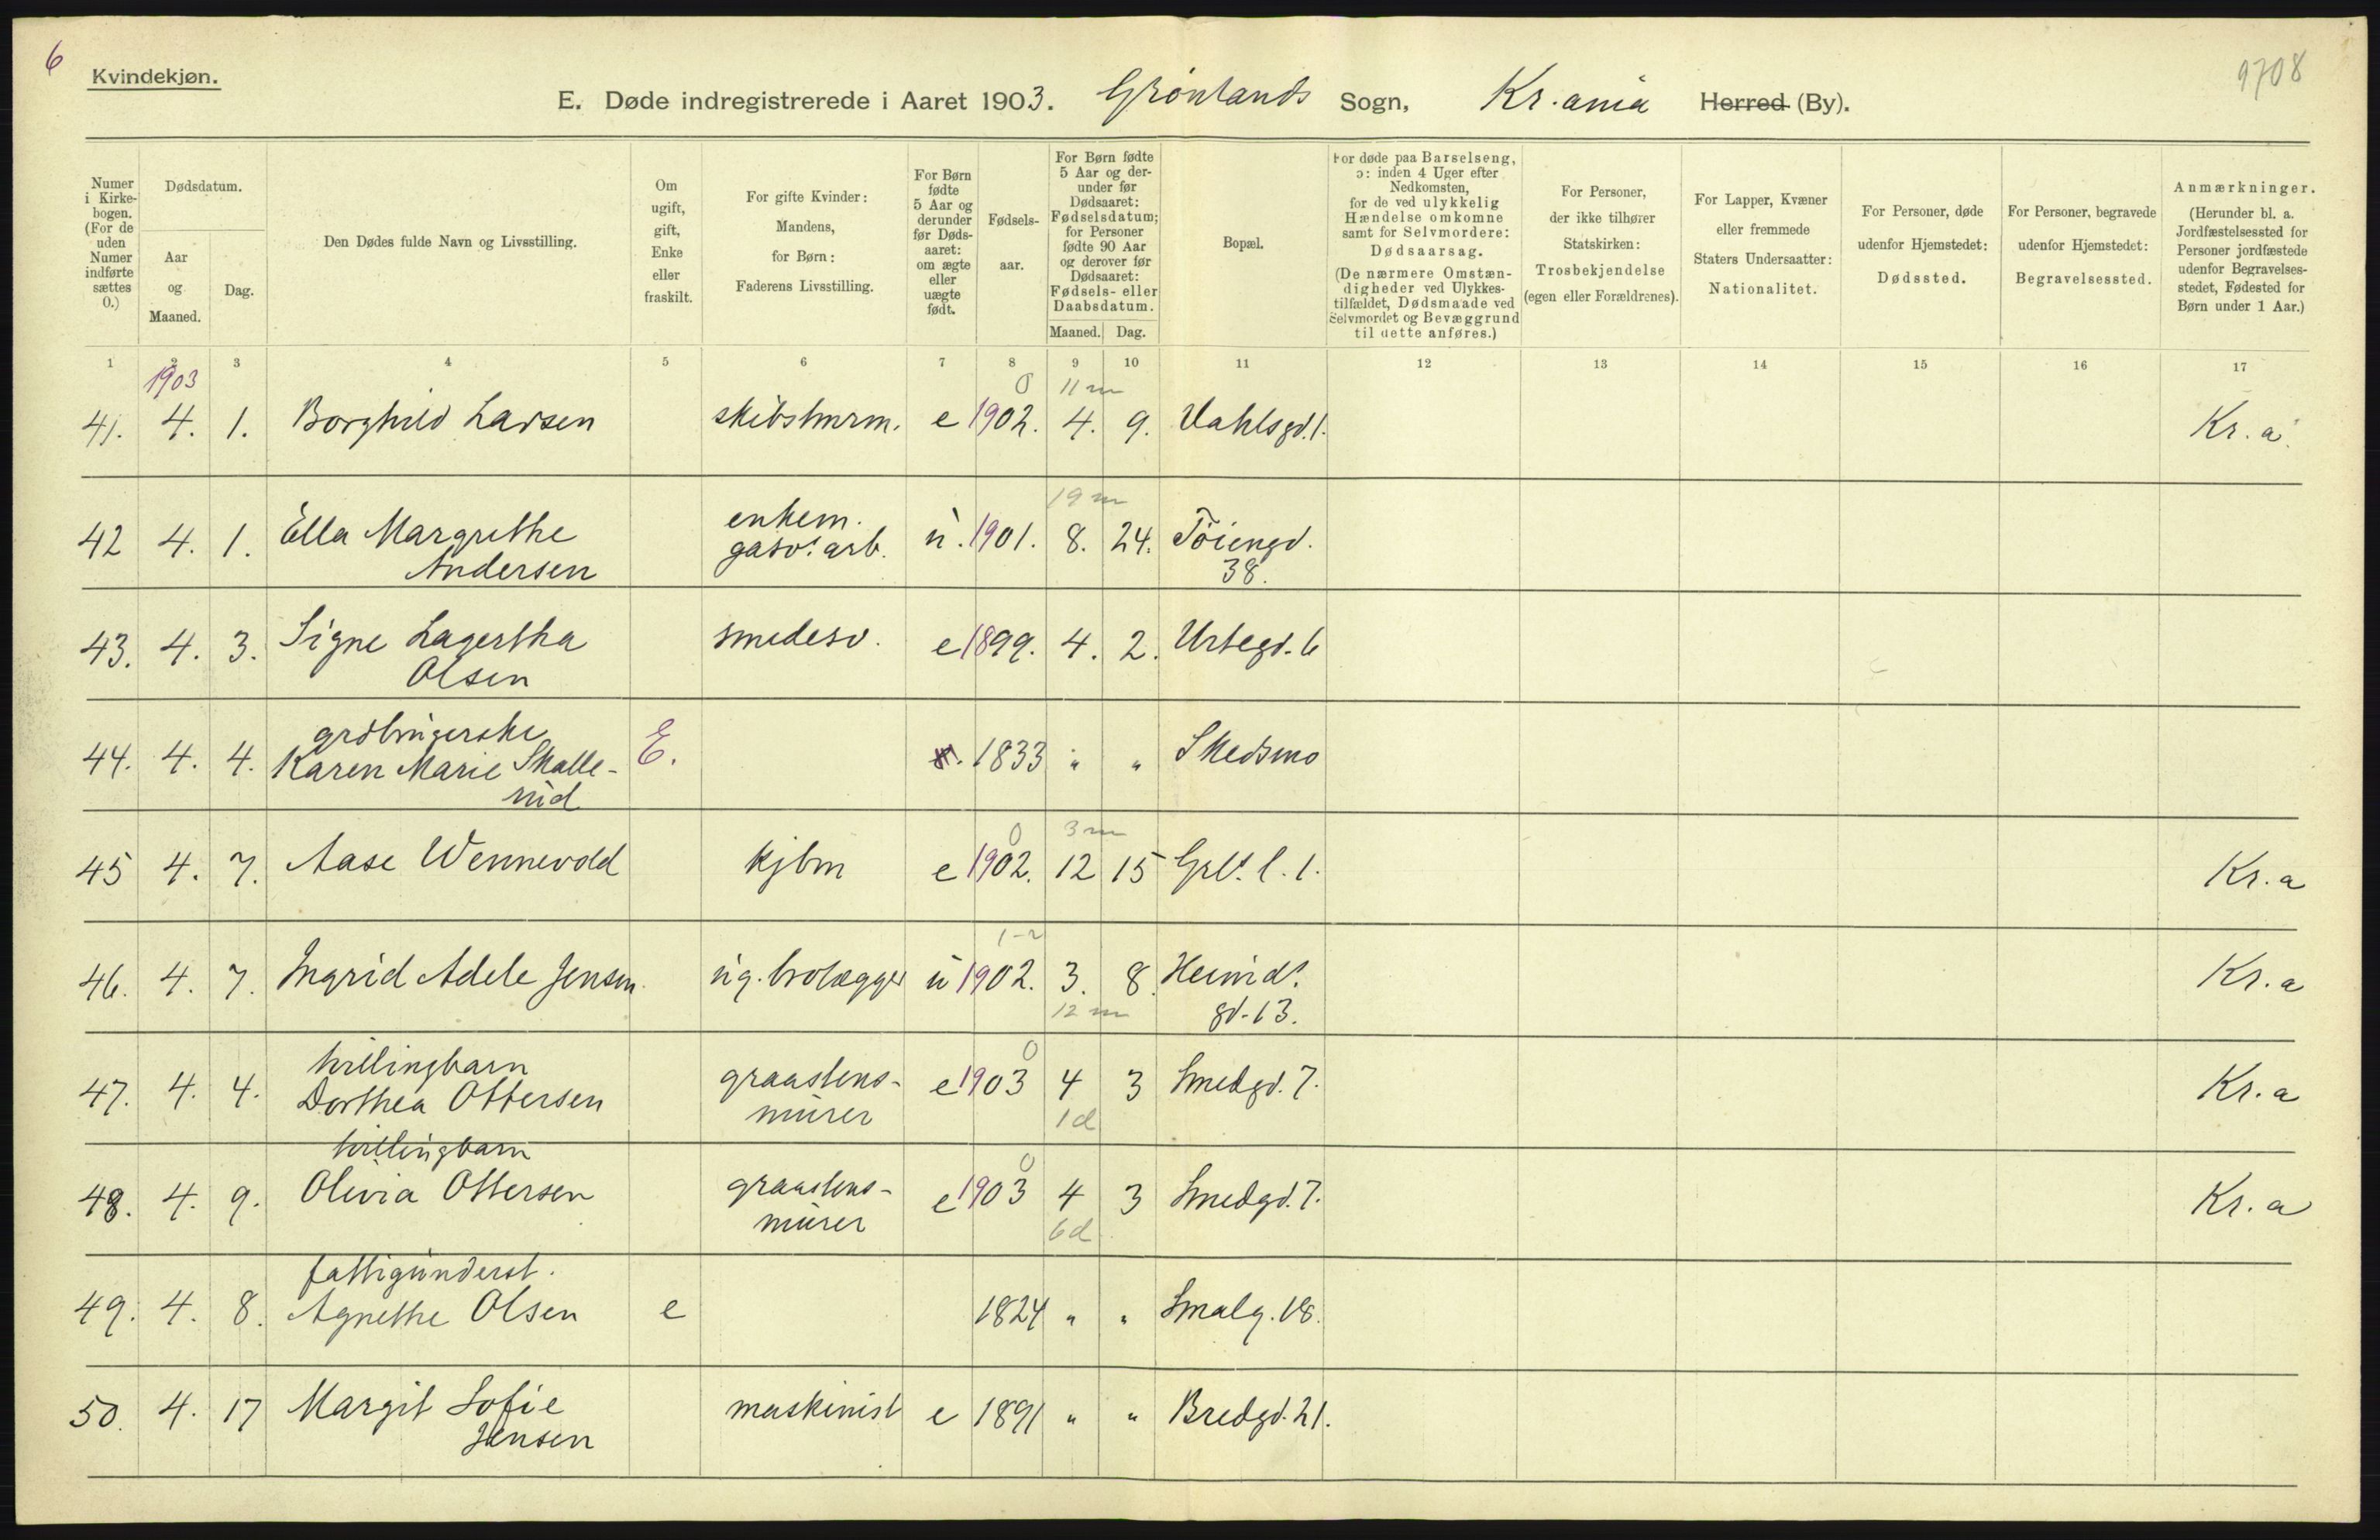 6
9708
Kvindekjøn.
E. Døde indregistrerede i Aaret 1903. Grønlands Sogn, Kr.ania Herred (By).
Numer i Kirkebogen. (For de uden Numer indførte sættes 0.)
Dødsdatum.
Aar og Maaned.
Dag.
Den Dødes fulde Navn og Livsstilling.
Om ugift, gift, Enke eller fraskilt.
For gifte Kvinder: Mandens, for Børn: Faderens Livsstilling.
For Børn fødte 5 Aar og derunder før Dødsaaret: om ægte eller uægte født.
Fødselsaar.
For Børn fødte 5 Aar og derunder før Dødsaaret: Fødselsdatum; for Personer fødte 90 Aar og derover før Dødsaaret: Fødsels- eller Daabsdatum.
Maaned. Dag.
Bopæl.
For døde paa Barselseng, ɔ: inden 4 Uger efter Nedkomsten, for de ved ulykkelig Hændelse omkomne samt for Selvmordere: Dødsaarsag. (De nærmere Omstændigheder ved Ulykkestilfældet, Dødsmaade ved Selvmordet og Bevæggrund til dette anføres.)
For Personer, der ikke tilhører Statskirken: Trosbekjendelse (egen eller Forældrenes).
For Lapper, Kvæner eller fremmede Staters Undersaatter: Nationalitet.
For Personer, døde udenfor Hjemstedet: Dødssted.
For Personer, begravede udenfor Hjemstedet: Begravelsessted.
Anmærkninger. (Herunder bl. a. Jordfæstelsessted for Personer jordfæstede udenfor Begravelsesstedet, Fødested for Børn under 1 Aar.)
1 2 3 4 5 6 7 8 9 10 11 12 13 14 15 16 17
1903 0 11 m
41. 4. 1. Borghild Larsen skibstmrm. e 1902. 4. 9. Vahlsgd. 1. Kr.a.
19 m
42 4. 1. Ella Margrethe Andersen enkem. gasv. arb. u. 1901. 8. 24. Tøiengd. 38.
43. 4. 3. Signe Lagertha Olsen smedesv. e 1899. 4. 2. Urtegd. 6
44. 4. 4. grdbrugerske Karen Marie Skallerud E. 1833 " " Skedsmo
0 3 m
45 4. 7. Aase Wennevold kjbm e 1902. 12 15 Grl. l. 1. Kr.a
1-2
46. 4. 7. Ingrid Adele Jensen. ug. brolægger u 1902. 3. 8. Heimds. gd. 13. Kr.a
12 m
0
47. 4. 4. tvillingbarn Dorthea Ottersen graastensmurer e 1903 4 3 Smedgd. 7. Kr.a
1 d
0
48. 4. 9. tvillingbarn Olivia Ottersen graastensmurer e 1903 4 3 Smedgd. 7. Kr.a
6 d
49. 4. 8. fattigunderst. Agnethe Olsen e 1824 " " Smalg. 18.
50. 4. 17 Margit Sofie Jensen maskinist e 1891 " " Bredgd. 21.